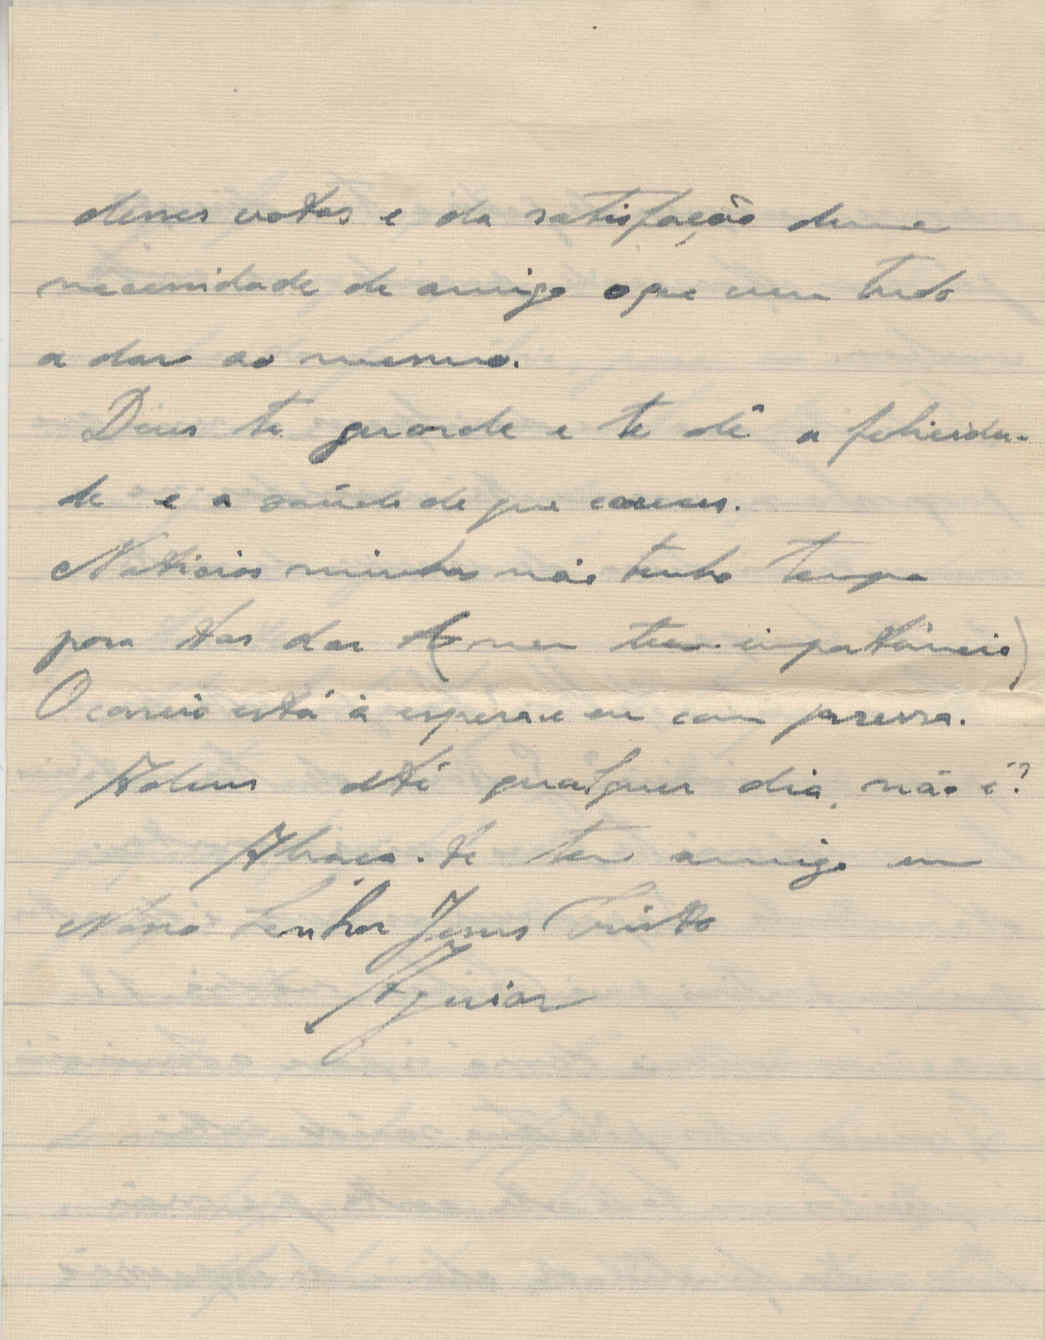 desses votos e da satisfação duma
necessidade de amigo que vem tudo
a dar ao mesmo.
Deus te guarde e te dê a felicida-
de e a saúde de que careces.
Noticias minhas não tenho tempo
para tas dar (nem teem importância)
O correio está à espera e eu com pressa.
Adeus até qualquer dia, não é?
Abraça-te teu amigo em
Nosso Senhor Jesus Cristo
Aguiar